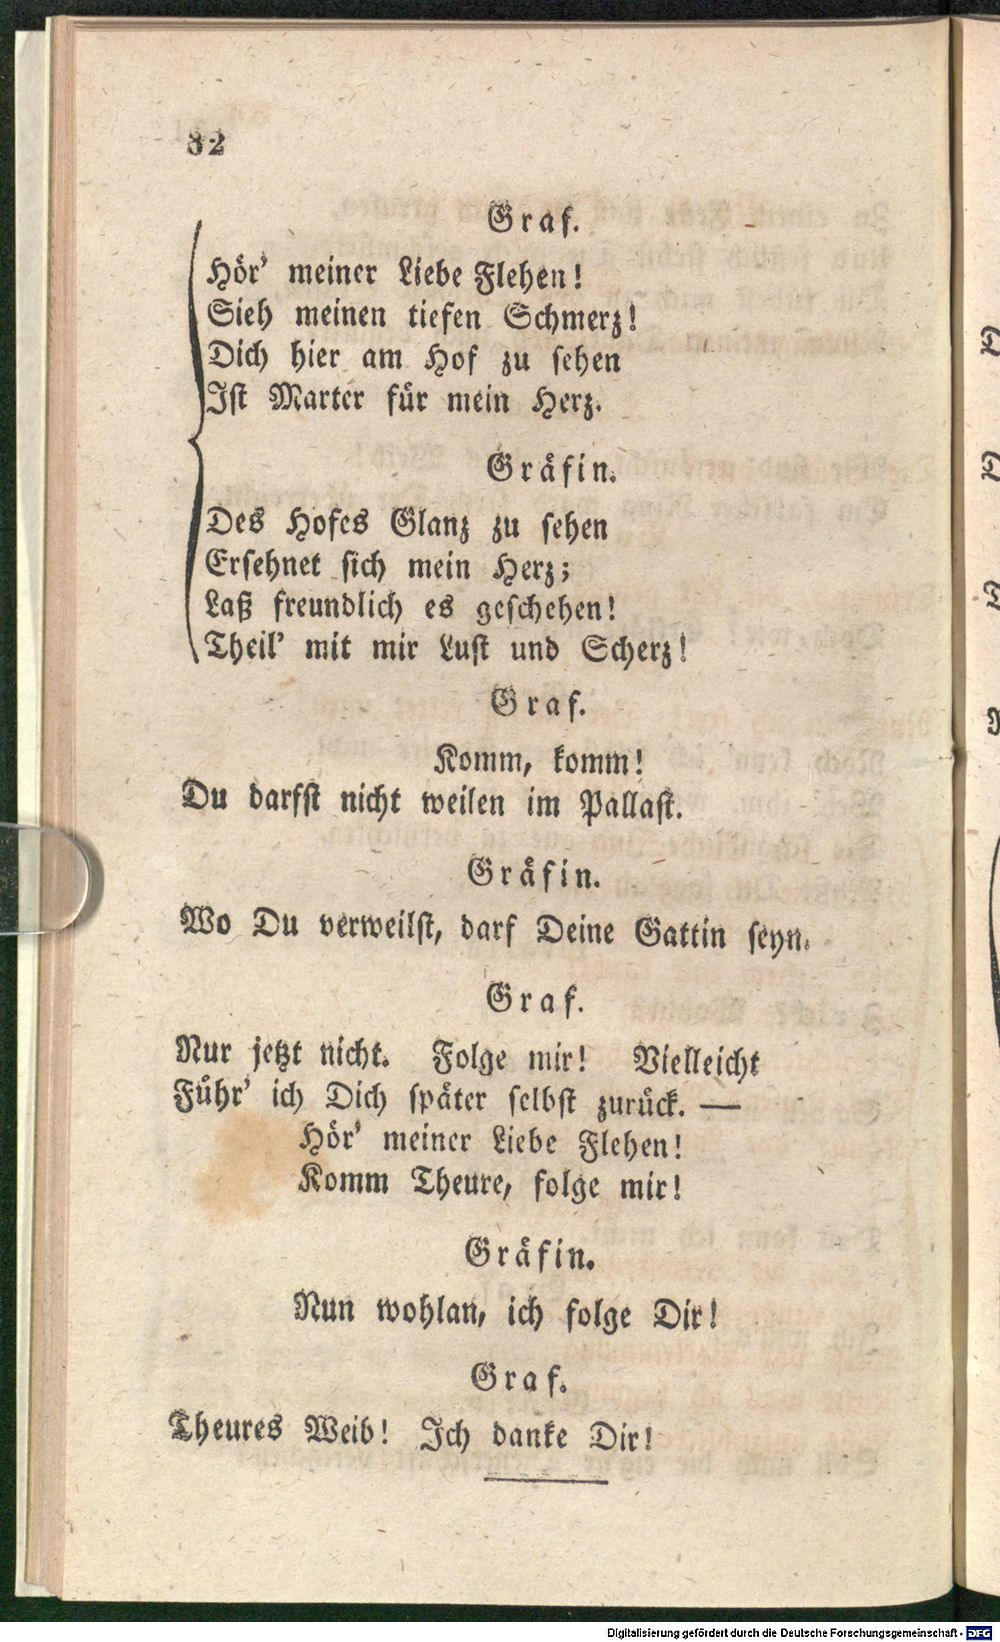 32
Graf.
Hör' meiner Liebe Flehen!
Sieh meinen tiefen Schmerz!
Dich hier am Hof zu sehen
Ist Marter für mein Herz.
Gräfin.
Des Hofes Glanz zu sehen
Ersehnet sich mein Herz;
Laß freundlich es geschehen!
Theil' mit mir Lust und Scherz!
Graf.
Komm, komm!
Du darfst nicht weilen im Pallast.
Gräfin.
Wo Du verweilst, darf Deine Gattin seyn.
Graf.
Nur jetzt nicht. Folge mir! Vielleicht
Führ' ich Dich später selbst zurück. —
Hör' meiner Liebe Flehen!
Komm Theure, folge mir!
Gräfin.
Nun wohlan, ich folge Dir!
Graf.
Theures Weib! Ich danke Dir!
Digitalisierung gefördert durch die Deutsche Forschungsgemeinschaft - DFG